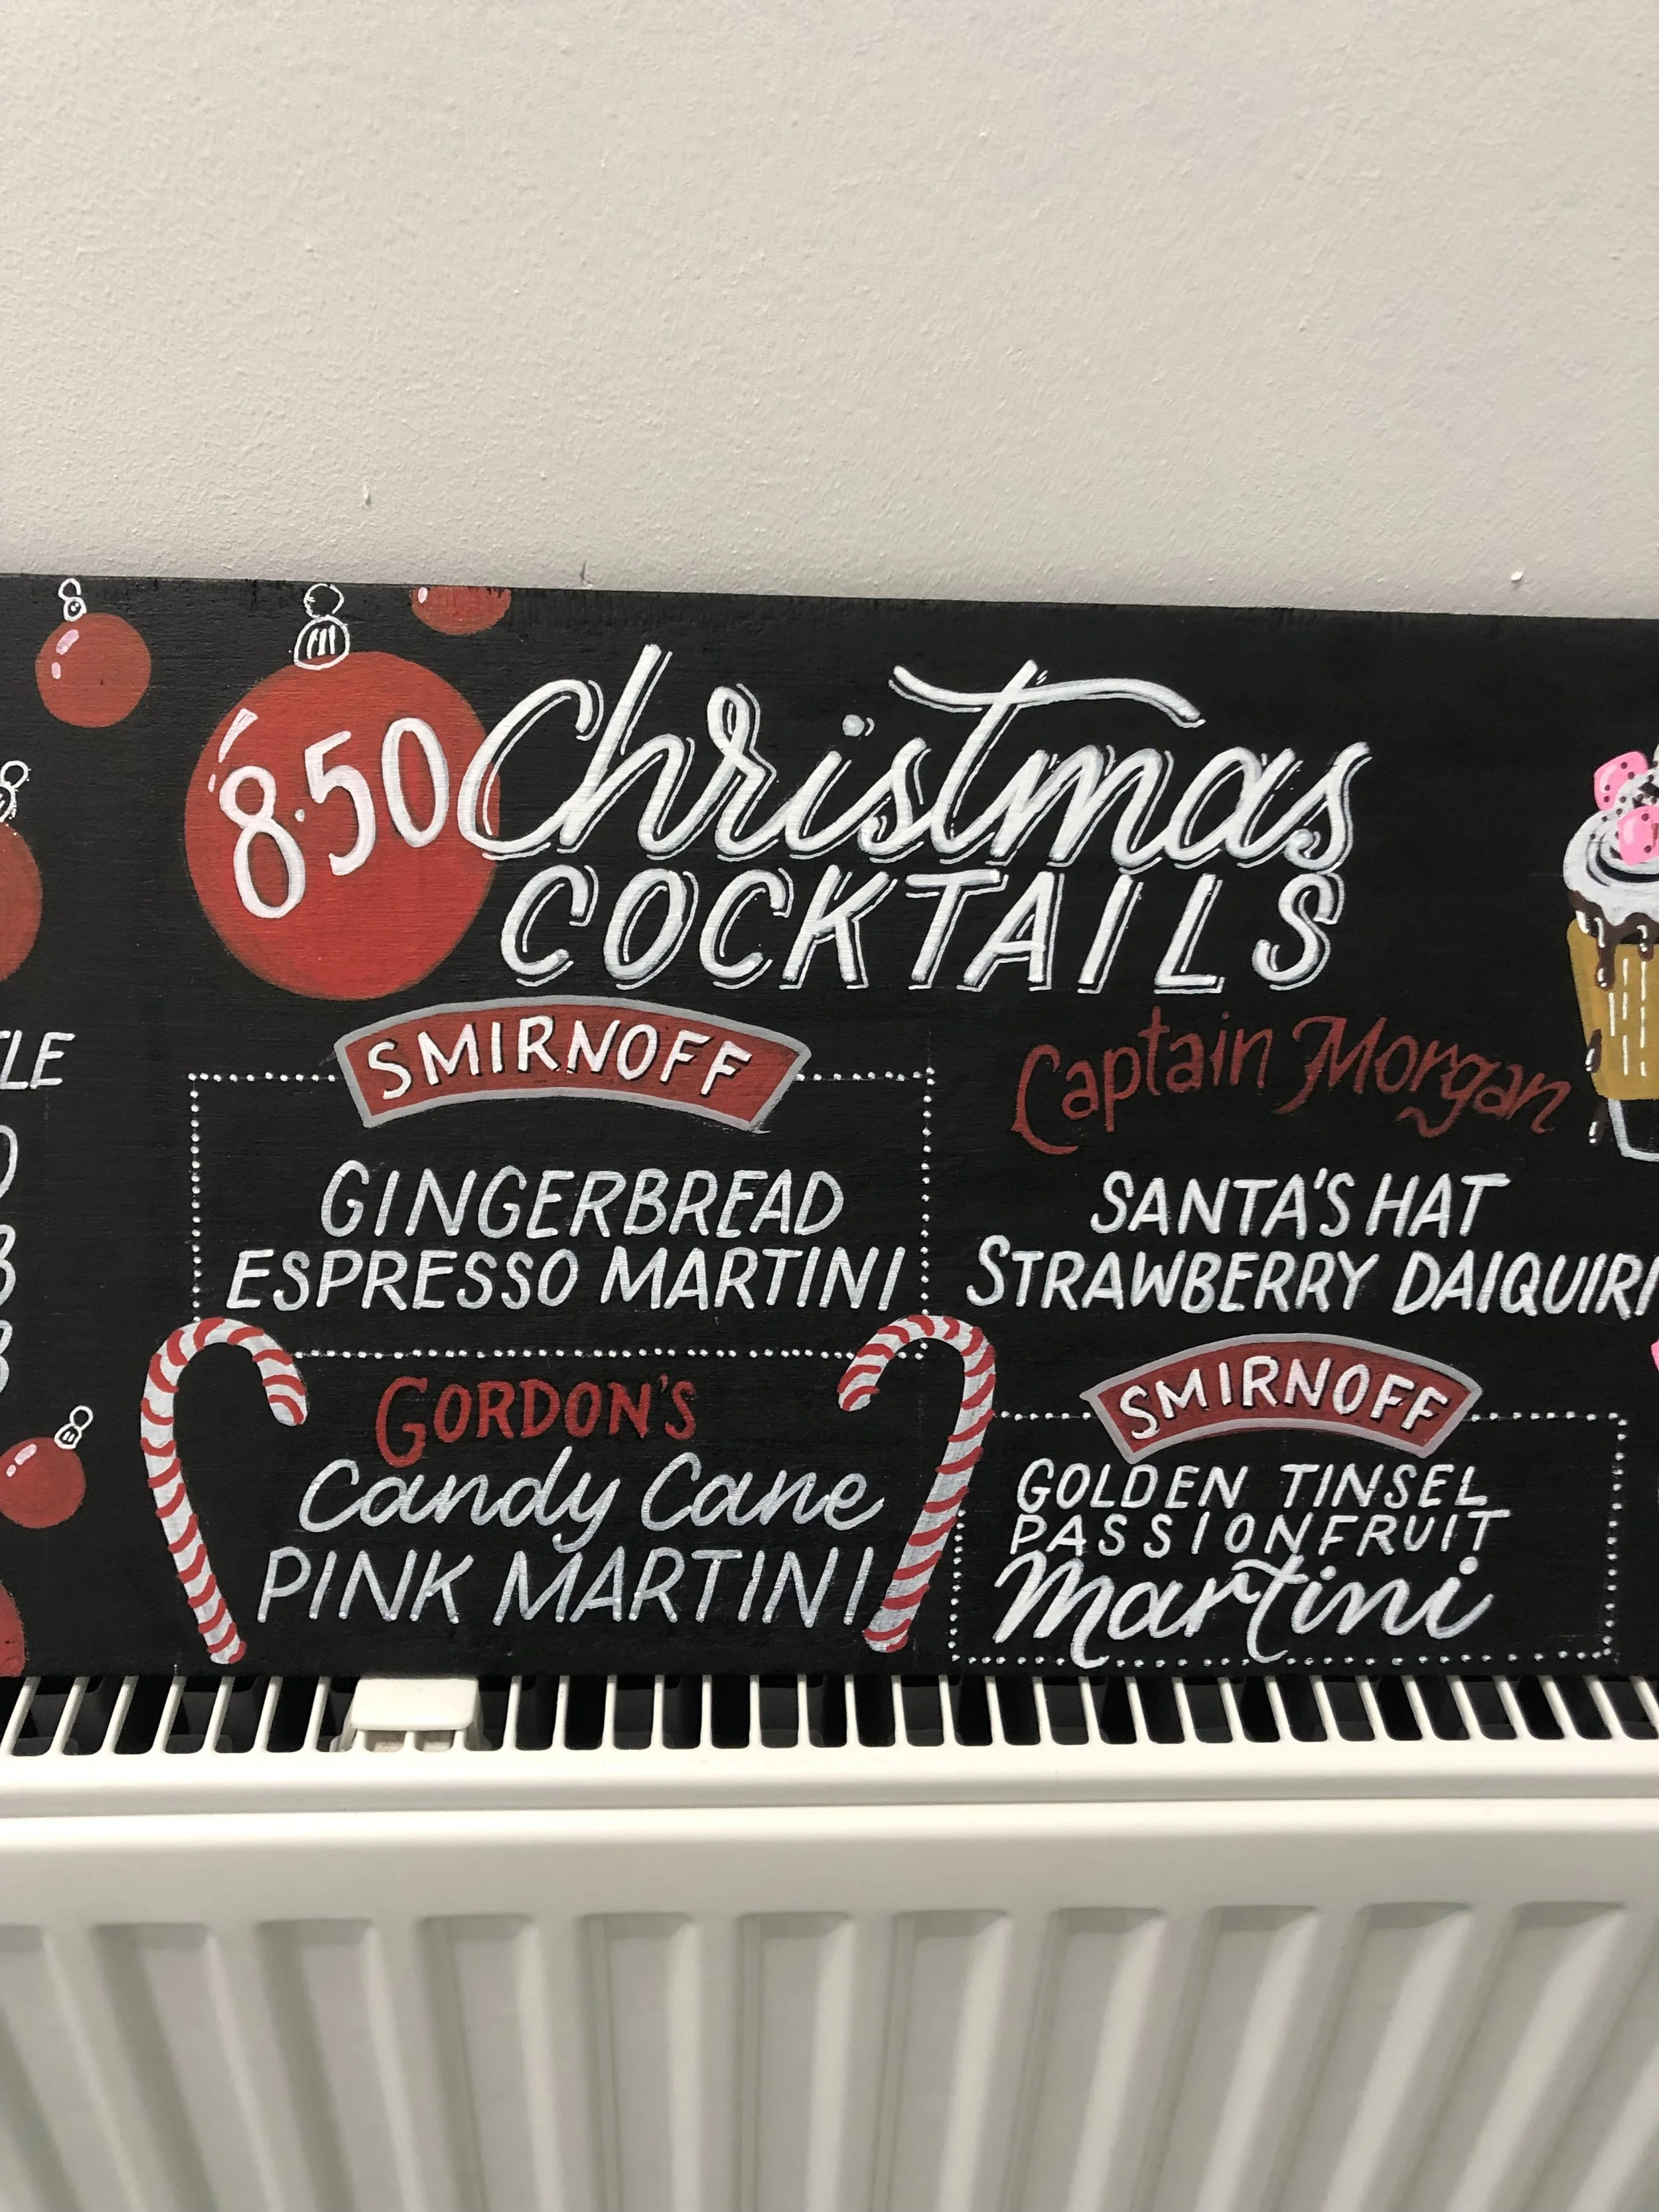 8.50 Christmas
COCKTAILS
SMIRNOFF
GINGERBREAD
ESPRESSO MARTINI
GORDON'S
Candy Cane
PINK MARTINI
Captain Morgan
SANTA'S HAT
STRAWBERRY DAIQUIRI
SMIRNOFF
GOLDEN TINSEL
PASSIONFRUIT
Martini